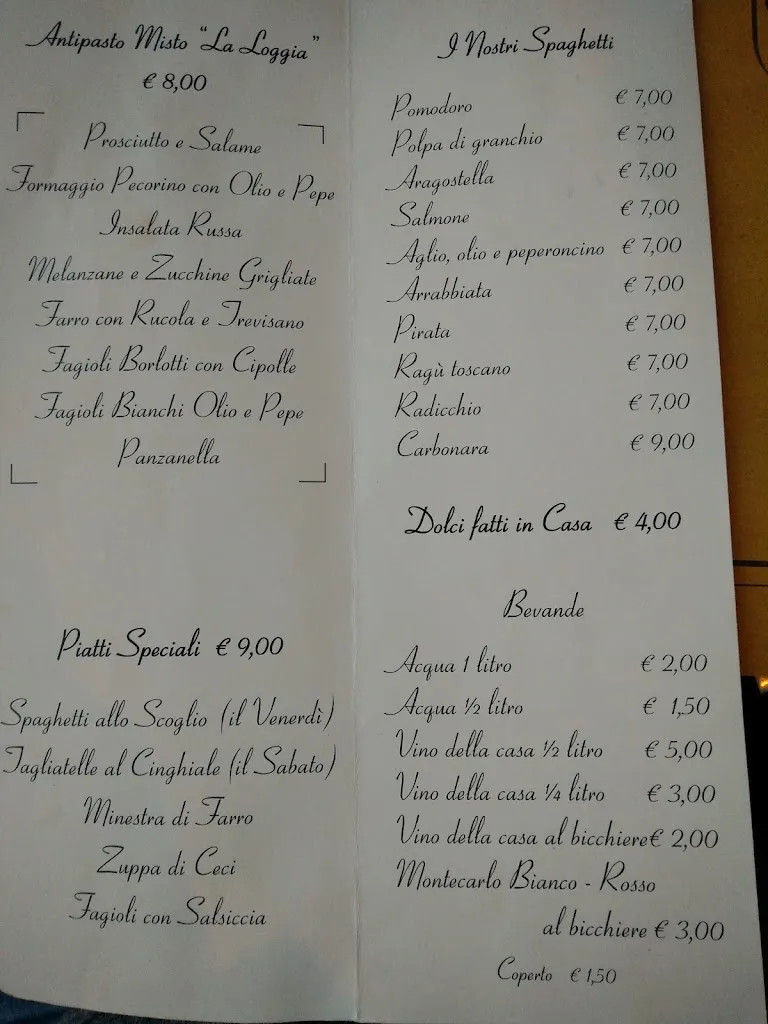 Antipasto Misto "La Loggia"
€ 8,00
Prosciutto e Salame
Formaggio Pecorino con Olio e Pepe
Insalata Russa
Melanzane e Zucchine Grigliate
Farro con Rucola e Trevisano
Fagioli Borlotti con Cipolle
Fagioli Bianchi Olio e Pepe
Panzanella
Piatti Speciali € 9,00
Spaghetti allo Scoglio (il Venerdì)
Tagliatelle al Cinghiale (il Sabato)
Minestra di Farro
Zuppa di Ceci
Fagioli con Salsiccia
I Nostri Spaghetti
Pomodoro € 7,00
Polpa di granchio € 7,00
Aragostella € 7,00
Salmone € 7,00
Aglio, olio e peperoncino € 7,00
Arrabbiata € 7,00
Pirata € 7,00
Ragù toscano € 7,00
Radicchio € 7,00
Carbonara € 9,00
Dolci fatti in Casa € 4,00
Bevande
Acqua 1 litro € 2,00
Acqua ½ litro € 1,50
Vino della casa ½ litro € 5,00
Vino della casa ¼ litro € 3,00
Vino della casa al bicchiere € 2,00
Montecarlo Bianco - Rosso
al bicchiere € 3,00
Coperto € 1,50